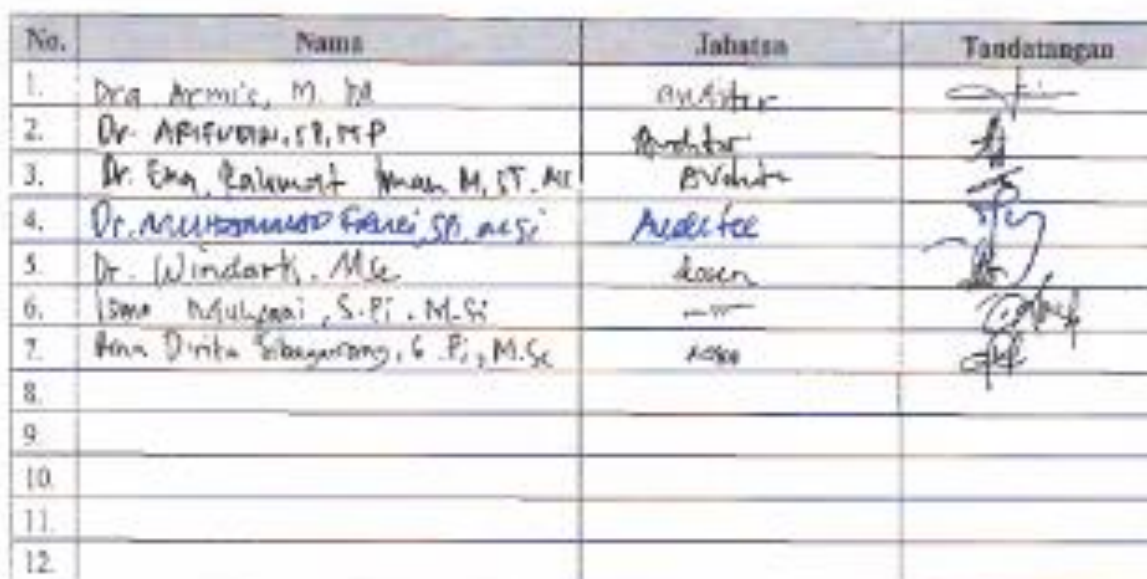 No. Nama Jabatan Tandatangan
1. Dra. Armis, M. Auditor
2. Dr. ARIFUDIN, SP, MP Auditor
3. Dr. Eng. Rahmat Iman M, ST. MT Auditor
4. Dr. MUHAMMAD Fauzi, SPi, MSi Auditee
5. Dr. Windarti, MSc dosen
6. Isma Mulyani, S.Pi, M.Si
7. Dinita Sibagariang, S.Pi, M.Sc dosen
8.
9.
10.
11.
12.